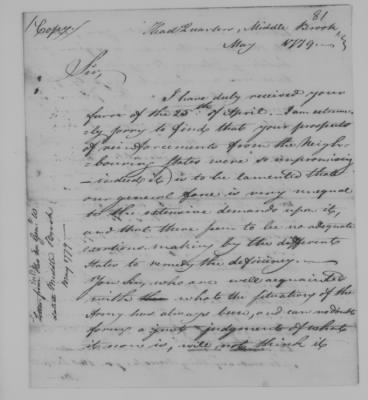 81
(Copy)
Head Quarters, Middle Brook
May 1779
Sir,
I have duly received your
favor of the 25th of April. I am extreme-
ly sorry to find that your prospects
of reinforcements from the Neigh-
bouring States were so unpromising
indeed it is to be lamented that
our general force is very unequal
to the extensive demands upon it,
and that there seem to be no adequate
exertions making by the different
States to remedy the deficiency.
You Sir, who are well acquainted
with what the situation of the
Army has always been, and can no doubt
form a just judgment of what
it now is, will not think it
Middle Brook
May 1779